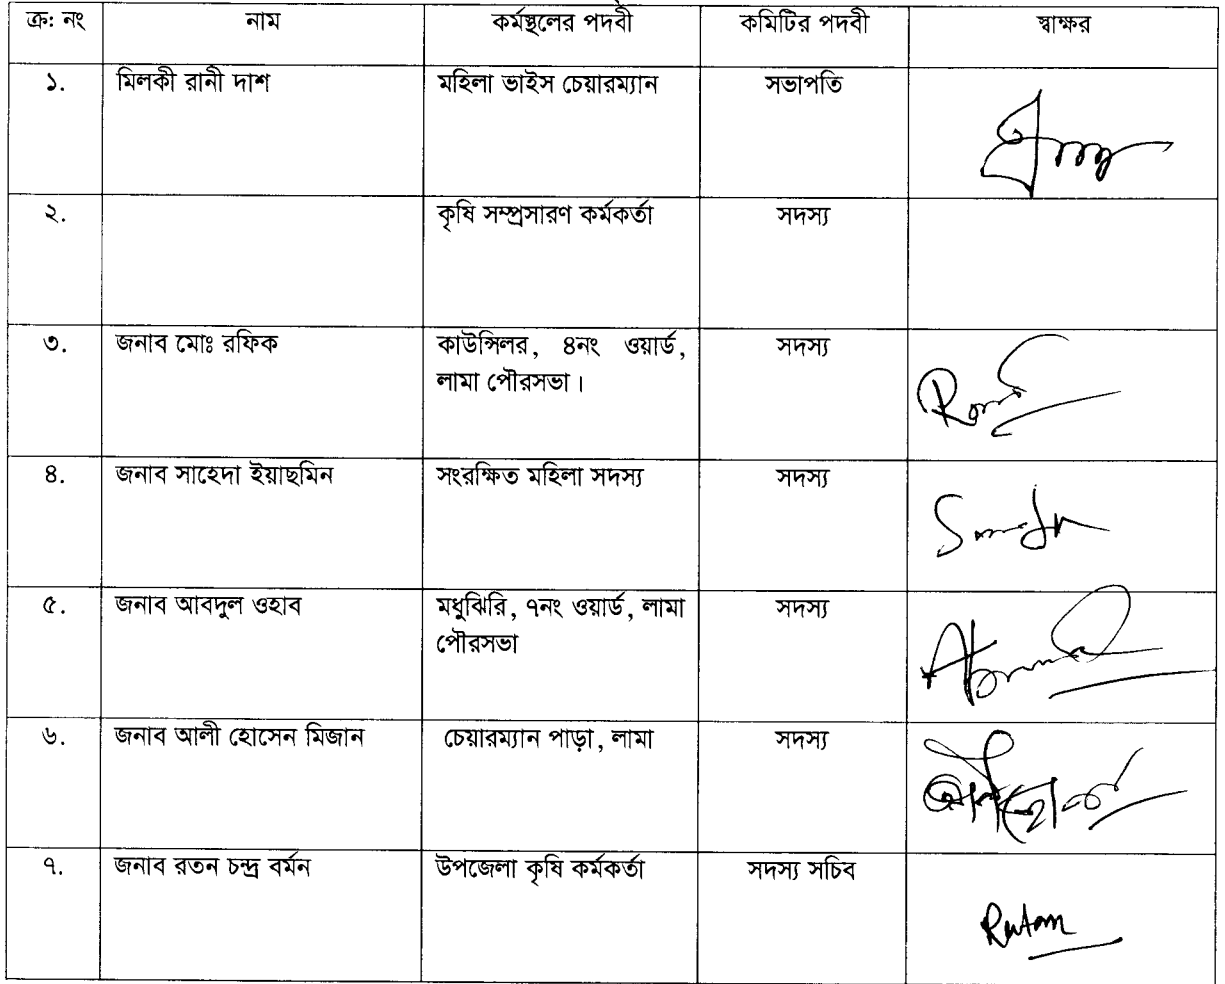 ক্র: নং নাম কর্মস্থলের পদবী কমিটির পদবী স্বাক্ষর
১. মিলকী রানী দাশ মহিলা ভাইস চেয়ারম্যান সভাপতি
২. কৃষি সম্প্রসারণ কর্মকর্তা সদস্য
৩. জনাব মোঃ রফিক কাউন্সিলর, ৪নং ওয়ার্ড, সদস্য
লামা পৌরসভা।
৪. জনাব সাহেদা ইয়াছমিন সংরক্ষিত মহিলা সদস্য সদস্য
৫. জনাব আবদুল ওহাব মধুঝিরি, ৭নং ওয়ার্ড, লামা সদস্য
পৌরসভা
৬. জনাব আলী হোসেন মিজান চেয়ারম্যান পাড়া, লামা সদস্য
৭. জনাব রতন চন্দ্র বর্মন উপজেলা কৃষি কর্মকর্তা সদস্য সচিব
Ratan